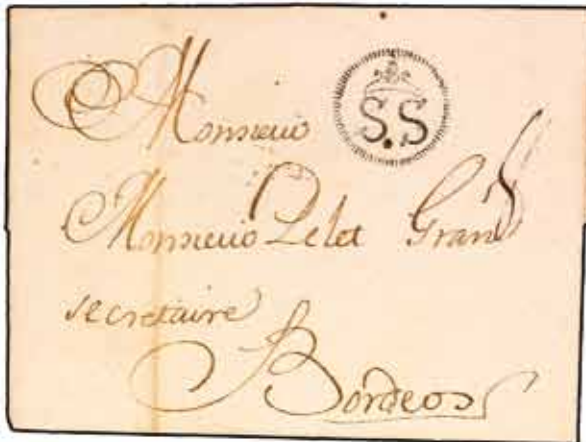 S.S
Monsieur
Monsieur Pelet Grand
secretaire
Bordeos